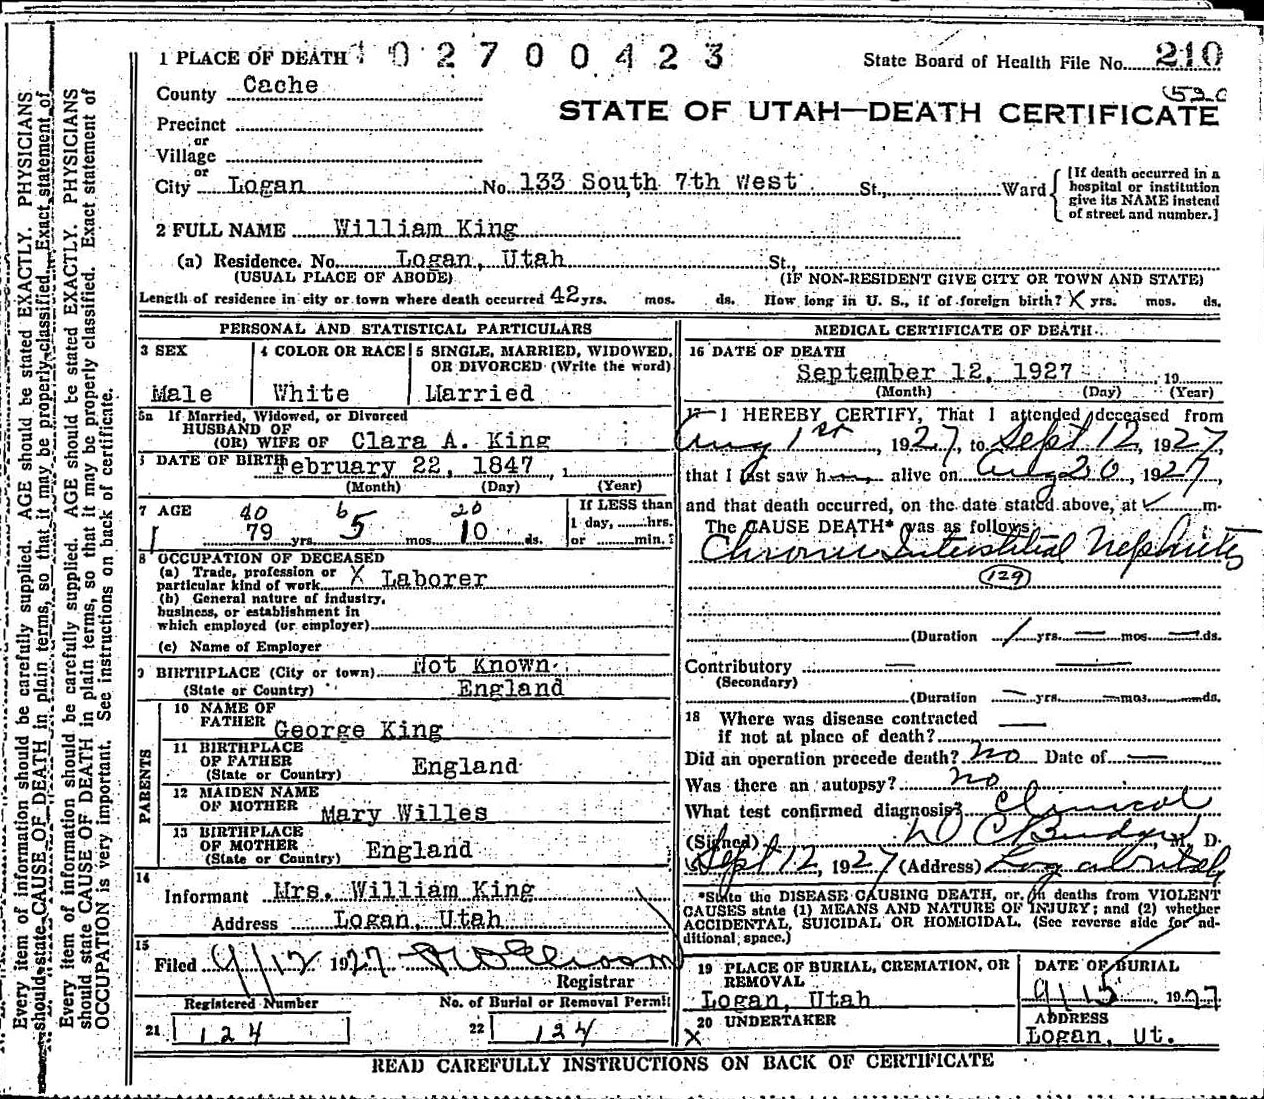 1 PLACE OF DEATH 102700423
State Board of Health File No. 210
County Cache
STATE OF UTAH—DEATH CERTIFICATE
Precinct
or
Village
or
City Logan No. 133 South 7th West St., Ward
[If death occurred in a
hospital or institution
give its NAME instead
of street and number.]
2 FULL NAME William King
(a) Residence. No. Logan, Utah St.,
(USUAL PLACE OF ABODE) (IF NON-RESIDENT GIVE CITY OR TOWN AND STATE)
Length of residence in city or town where death occurred 42 yrs. mos. ds. How long in U. S., if of foreign birth? X yrs. mos. ds.
PERSONAL AND STATISTICAL PARTICULARS
3 SEX
Male
4 COLOR OR RACE
White
5 SINGLE, MARRIED, WIDOWED,
OR DIVORCED (Write the word)
Married
5a If Married, Widowed, or Divorced
HUSBAND OF
(OR) WIFE OF Clara A. King
DATE OF BIRTH February 22, 1847, 1
(Month) (Day) (Year)
7 AGE 40 6 20
79 yrs. 5 mos. 10 ds.
If LESS than
1 day, hrs.
or min.?
8 OCCUPATION OF DECEASED
(a) Trade, profession or
particular kind of work X Laborer
(b) General nature of industry,
business, or establishment in
which employed (or employer)
(c) Name of Employer
9 BIRTHPLACE (City or town) Not Known
(State or Country) England
PARENTS
10 NAME OF
FATHER George King
11 BIRTHPLACE
OF FATHER
(State or Country) England
12 MAIDEN NAME
OF MOTHER Mary Willes
13 BIRTHPLACE
OF MOTHER
(State or Country) England
14
Informant Mrs. William King
Address Logan, Utah
15
Filed 9/12 1927
Registrar
Registered Number
21 124
No. of Burial or Removal Permit
22 124
MEDICAL CERTIFICATE OF DEATH
16 DATE OF DEATH
September 12, 1927 19
(Month) (Day) (Year)
17 I HEREBY CERTIFY, That I attended deceased from
Aug 1st, 1927, to Sept 12, 1927,
that I last saw h alive on Aug 20, 1927
and that death occurred, on the date stated above, at m.
The CAUSE DEATH* was as follows:
Chronic Interstitial Nephritis
(129)
(Duration 1 yrs. — mos. — ds.
Contributory — —
(Secondary)
(Duration — yrs. — mos. — ds.
18 Where was disease contracted
if not at place of death? —
Did an operation precede death? no Date of —
Was there an autopsy? no
What test confirmed diagnosis? Clinical
(Signed) D C Budge, M. D.
Sept 12, 1927 (Address) Logan Utah
*State the DISEASE CAUSING DEATH, or, in deaths from VIOLENT
CAUSES state (1) MEANS AND NATURE OF INJURY; and (2) whether
ACCIDENTAL, SUICIDAL OR HOMICIDAL. (See reverse side for ad-
ditional space.)
19 PLACE OF BURIAL, CREMATION, OR
REMOVAL
Logan, Utah
DATE OF BURIAL
9/15 1927
20 UNDERTAKER
X
ADDRESS
Logan, Ut.
READ CAREFULLY INSTRUCTIONS ON BACK OF CERTIFICATE
Every item of information should be carefully supplied. AGE should be stated EXACTLY. PHYSICIANS
should state CAUSE OF DEATH in plain terms, so that it may be properly classified. Exact statement of
Every item of information should be carefully supplied. AGE should be stated EXACTLY. PHYSICIANS
should state CAUSE OF DEATH in plain terms, so that it may be properly classified. Exact statement of
OCCUPATION is very important. See instructions on back of certificate.